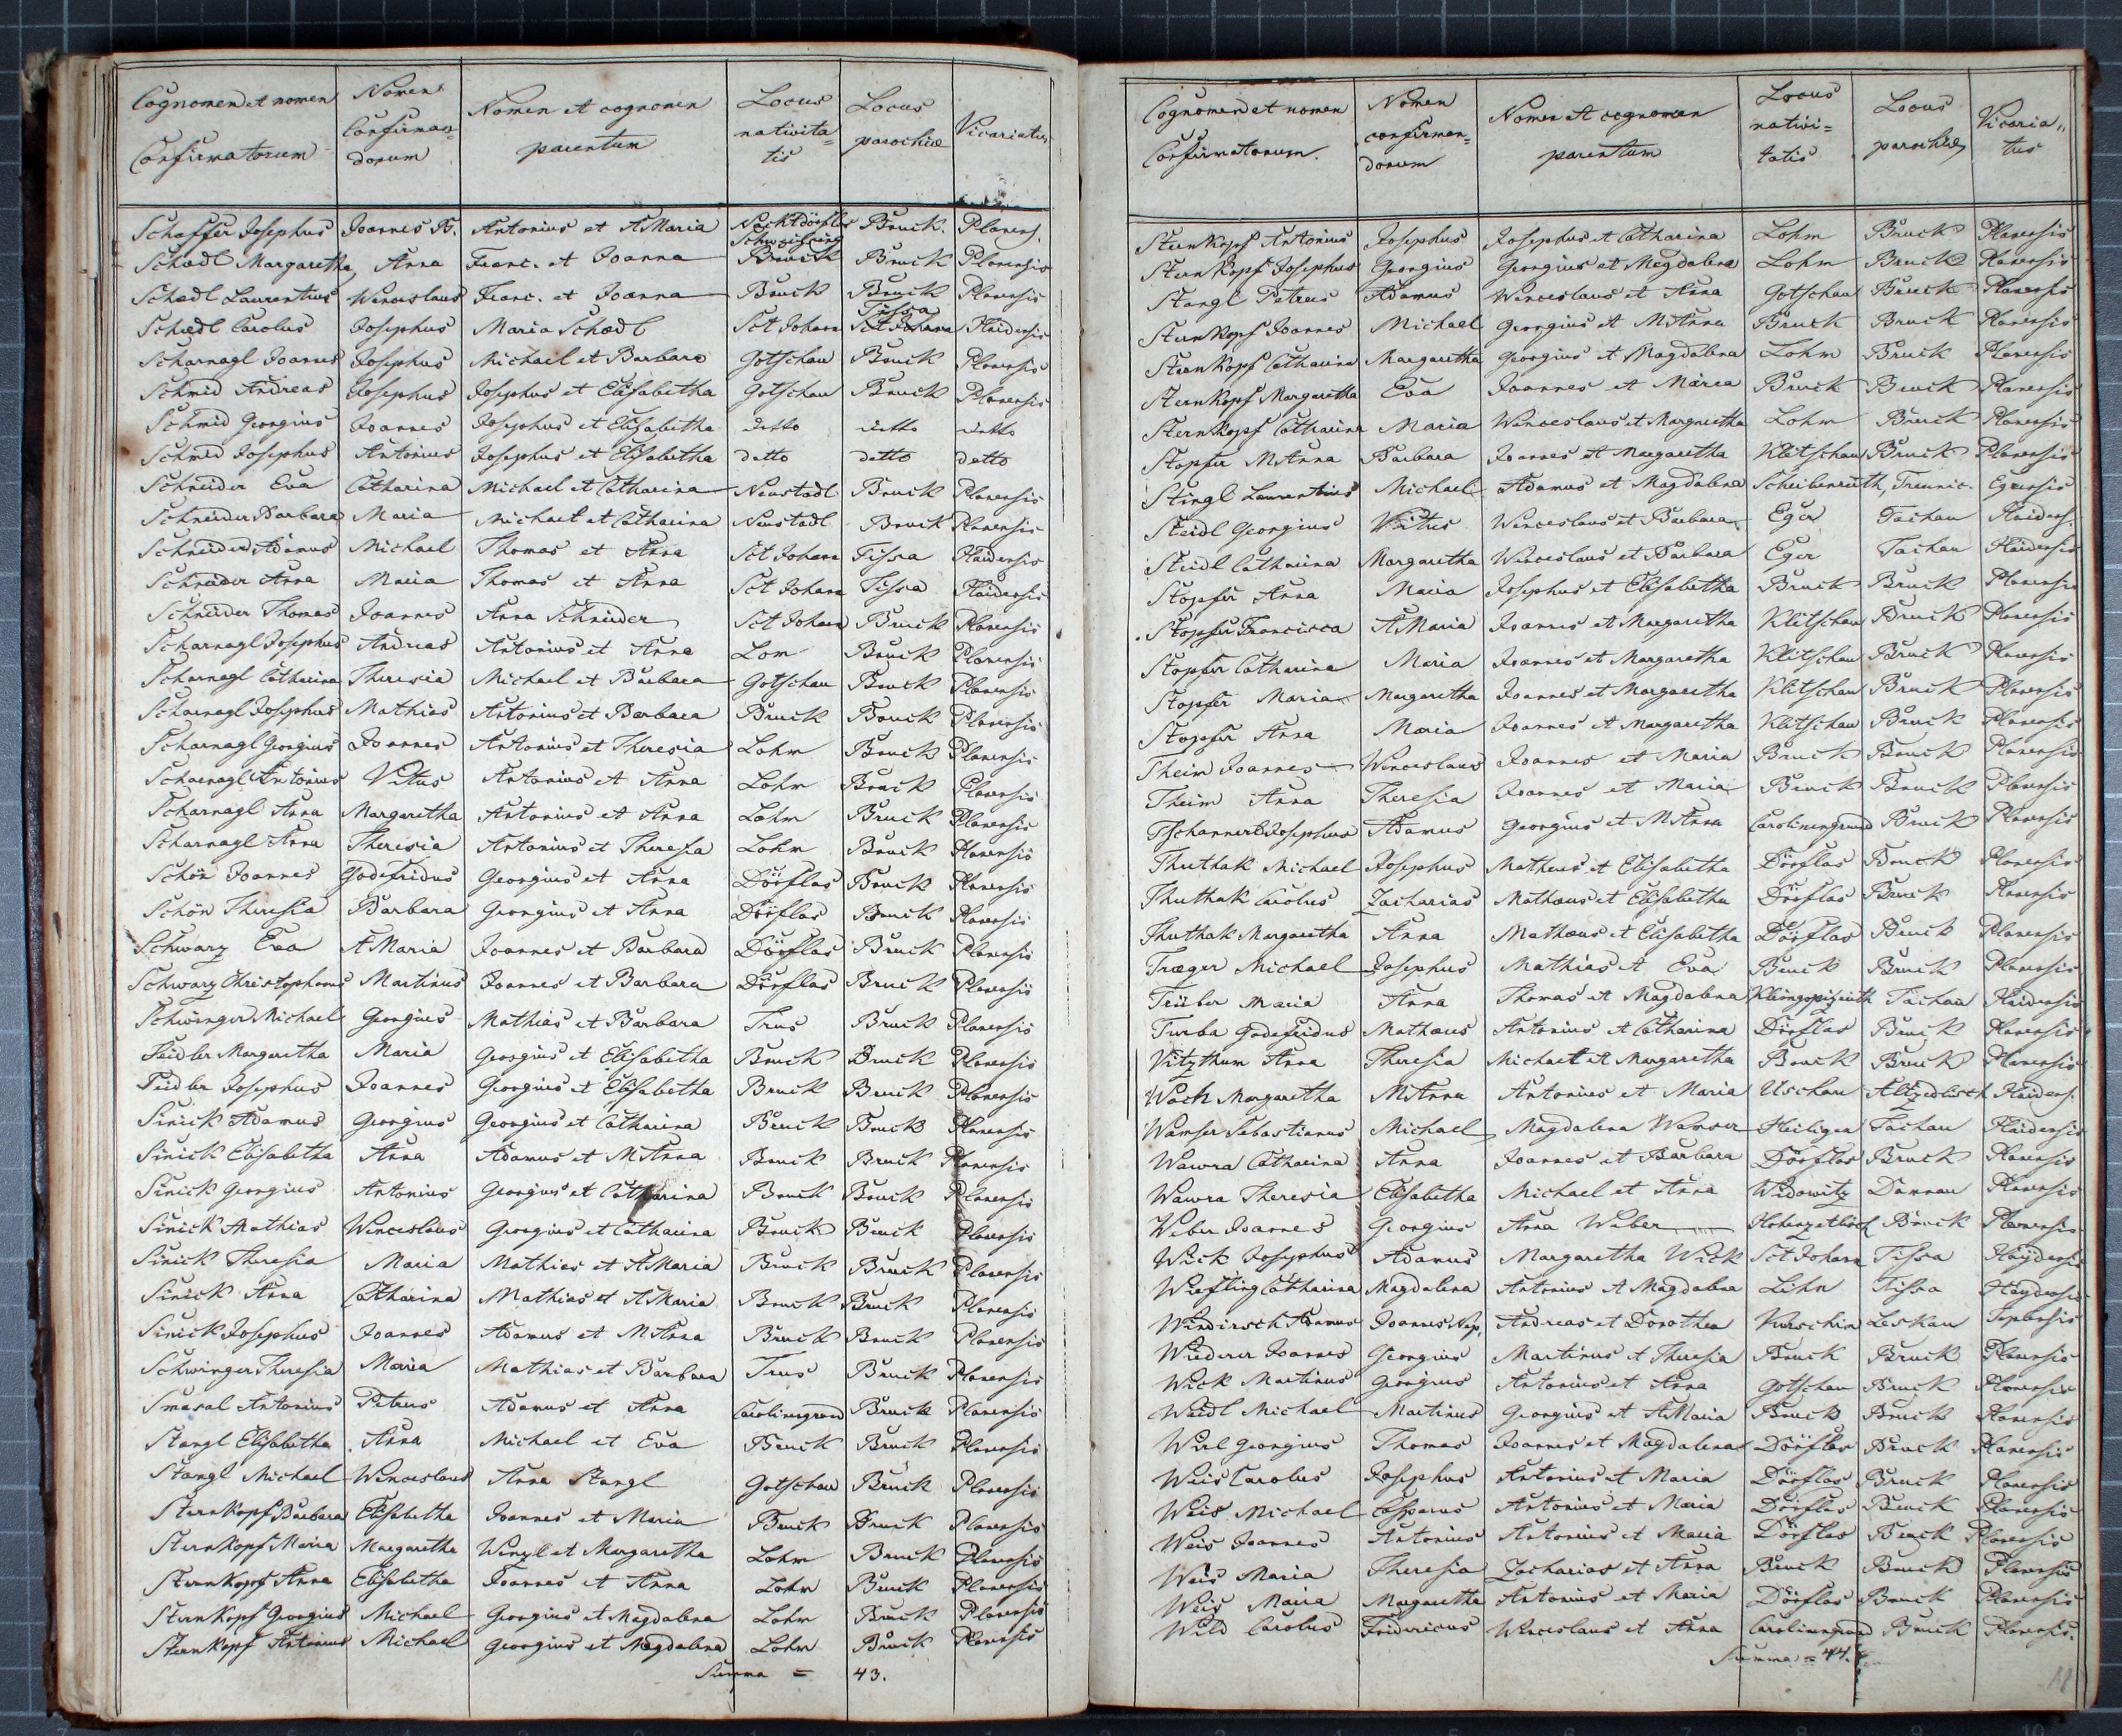 Cognomen et nomen Confirmatorum | Nomen Confirman=dorum | Nomen et cognomen parentum | Locus nativita=tis | Locus parochiæ | Vicariatus
Schaffer Josephus Joannes B. Antonius et AMaria Bruck. Planens.
Schœdl Margaretha, Anna Franc. et Joanna Bruck Bruck Planensis
Schœdl Laurentius Wenceslaus Franc. et Joanna Bruck Bruck Planensis
Schœdl Carolus Josephus Maria Schœdl Sct Johann Tissa Haidensis
Scharnagl Joannes Josephus Michael et Barbara Gotschau Bruck Planensis
Schmid Andreas Josephus Josephus et Elisabetha Gotschau Bruck Planensis
Schmid Georgius Joannes Josephus et Elisabetha detto detto detto
Schmid Josephus Antonius Josephus et Elisabetha detto detto detto
Schneider Eva Catharina Michael et Catharina Neustadl Bruck Planensis
Schneider Barbara Maria Michael et Catharina Neustadl Bruck Planensis
Schneider Adamus Michael Thomas et Anna Sct Johann Tissa Haidensis
Schneider Anna Maria Thomas et Anna Sct Johann Tissa Haidensis
Schneider Thomas Joannes Anna Schneider Sct Johann Bruck Planensis
Scharnagl Josephus Andreas Antonius et Anna Lom Bruck Planensis
Scharnagl Catharina Theresia Michael et Barbara Gotschau Bruck Planensis
Scharnagl Josephus Mathias Antonius et Barbara Bruck Bruck Planensis
Scharnagl Georgius Joannes Antonius et Theresia Lohm Bruck Planensis
Scharnagl Antonius Vitus Antonius et Anna Lohm Bruck Planensis
Scharnagl Anna Margaretha Antonius et Anna Lohm Bruck Planensis
Scharnagl Anna Theresia Antonius et Theresia Lohm Bruck Planensis
Schön Joannes Godefridus Georgius et Anna Dörflas Bruck Planensis
Schön Theresia Barbara Georgius et Anna Dörflas Bruck Planensis
Schwarz Eva AMaria Joannes et Barbara Dörflas Bruck Planensis
Schwarz Christophorus Martinus Joannes et Barbara Dörflas Bruck Planensis
Schwinger Michael Georgius Mathias et Barbara Trus Bruck Planensis
Seidler Margaretha Maria Georgius et Elisabetha Bruck Bruck Planensis
Seidler Josephus Joannes Georgius et Elisabetha Bruck Bruck Planensis
Sinick Adamus Georgius Georgius et Catharina Bruck Bruck Planensis
Sinick Elisabetha Anna Adamus et MAnna Bruck Bruck Planensis
Sinick Georgius Antonius Georgius et Catharina Bruck Bruck Planensis
Sinick Mathias Wenceslaus Georgius et Catharina Bruck Bruck Planensis
Sinick Theresia Maria Mathias et AMaria Bruck Bruck Planensis
Sinick Anna Catharina Mathias et AMaria Bruck Bruck Planensis
Sinick Josephus Joannes Adamus et MAnna Bruck Bruck Planensis
Schwinger Theresia Maria Mathias et Barbara Trus Bruck Planensis
Smasal Antonius Petrus Adamus et Anna Carolinegrund Bruck Planensis
Stangl Elisabetha Anna Michael et Eva Bruck Bruck Planensis
Stangl Michael Wenceslaus Anna Stangl Gotschau Bruck Planensis
Sternkopf Barbara Elisabetha Joannes et Maria Bruck Bruck Planensis
Sternkopf Maria Margaretha Wenzl et Margaretha Lohm Bruck Planensis
Sternkopf Anna Elisabetha Joannes et Anna Lohm Bruck Planensis
Sternkopf Georgius Michael Georgius et Magdalena Lohm Bruck Planensis
Sternkopf Antonius Michael Georgius et Magdalena Lohm Bruck Planensis
Summa = 43.
Cognomen et nomen Confirmatorum. | Nomen confirman=dorum | Nomen et cognomen parentum | Locus nativi=tatis | Locus parochiæ | Vicaria„tus
Sternkopf Antonius Josephus Josephus et Catharina Lohm Bruck Planensis
Sternkopf Josephus Georgius Georgius et Magdalena Lohm Bruck Planensis
Stangl Petrus Adamus Wenceslaus et Anna Gotschau Bruck Planensis
Sternkopf Joannes Michael Georgius et MAnna Bruck Bruck Planensis
Sternkopf Catharina Margaretha Georgius et Magdalena Lohm Bruck Planensis
Sternkopf Margaretha Eva Joannes et Maria Bruck Bruck Planensis
Sternkopf Catharina Maria Wenceslaus et Margaretha Lohm Bruck Planensis
Stopfer MAnna Barbara Joannes et Margaretha Klitschau Bruck Planensis
Stingl Laurentius Michael Adamus et Magdalena Scheibenreuth, Trennic. Egrensis
Steidl Georgius Vitus Wenceslaus et Barbara Eger Tachau Haidens.
Steidl Catharina Margaretha Wenceslaus et Barbara Eger Tachau Haidensis
Stopfer Anna Maria Josephus et Elisabetha Bruck Bruck Planensis
Stopfer Francisca AMaria Joannes et Margaretha Klitschau Bruck Planensis
Stopfer Catharina Maria Joannes et Margaretha Klitschau Bruck Planensis
Stopfer Maria Margaretha Joannes et Margaretha Klitschau Bruck Planensis
Stopfer Anna Maria Joannes et Margaretha Klitschau Bruck Planensis
Theim Joannes Wenceslaus Joannes et Maria Bruck Bruck Planensis
Theim Anna Theresia Joannes et Maria Bruck Bruck Planensis
Tschannerl Josephus Adamus Georgius et MAnna Carolinengrund Bruck Planensis
Thuthak Michael Josephus Matheus et Elisabetha Dörflas Bruck Planensis
Thuthak Carolus Zacharias Mathæus et Elisabetha Dörflas Bruck Planensis
Thuthak Margaretha Anna Mathæus et Elisabetha Dörflas Bruck Planensis
Træger Michael Josephus Mathias et Eva Bruck Bruck Planensis
Trüber Maria Anna Thomas et Magdalena Tachau Haidensis
Turba Godefridus Mathæus Antonius et Catharina Dörflas Bruck Planensis
Vitzthum Anna Theresia Michael et Margaretha Bruck Bruck Planensis
Wach Margaretha MAnna Antonius et Maria Uschau Altzedlisch Haidens.
Wamser Sebastianus Michael Magdalena Wamser Heiligen Tachau Haidensis
Wawra Catharina Anna Joannes et Barbara Dörflas Bruck Planensis
Wawra Theresia Elisabetha Michael et Anna Widowitz Damnau Planensis
Weber Joannes Georgius Anna Weber Hohenzetlisch Bruck Planensis
Wick Josephus Adamus Margaretha Wick Sct Johann Tissa Haydensis
Wiefling Catharina Magdalena Antonius et Magdalena Lohn Tissa Haydensis
Windirsch Adamus Joannes Nep. Andreas et Dorothea Kurschin Leskau Teplensis
Wiederer Joannes Georgius Martinus et Theresia Bruck Bruck Planensis
Wick Martinus Georgius Antonius et Anna Gotschau Bruck Planensis
Weidl Michael Martinus Georgius et AMaria Bruck Bruck Planensis
Wirl Georgius Thomas Joannes et Magdalena Dörflas Bruck Planensis
Weis Carolus Josephus Antonius et Maria Dörflas Bruck Planensis
Weis Michael Casparus Antonius et Maria Dörflas Bruck Planensis
Weis Joannes Antonius Antonius et Maria Dörflas Bruck Planensis
Weis Maria Theresia Zacharias et Anna Bruck Bruck Planensis
Weis Maria Margaretha Antonius et Maria Dörflas Bruck Planensis
Wild Carolus Fridericus Wenceslaus et Anna Carolinengrund Bruck Planensis.
Summa = 44.